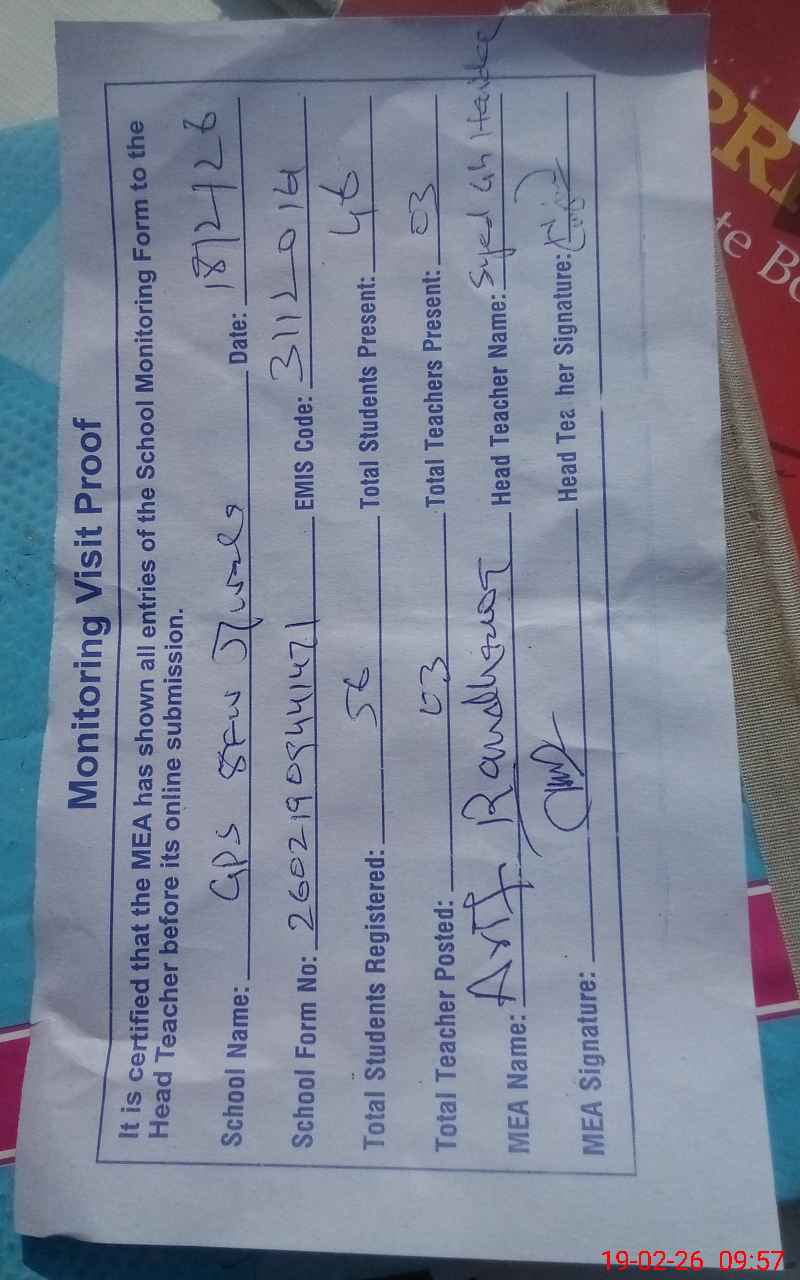 Monitoring Visit Proof
It is certified that the MEA has shown all entries of the School Monitoring Form to the
Head Teacher before its online submission.
School Name: GPS 8FW Date: 18/2/26
School Form No: EMIS Code: 31120164
Total Students Registered: 56 Total Students Present: 46
Total Teacher Posted: 03 Total Teachers Present: 03
MEA Name: Arif Randhawa Head Teacher Name: Syed
MEA Signature: Head Tea her Signature:
PRI
te Bo
19-02-26 09:57